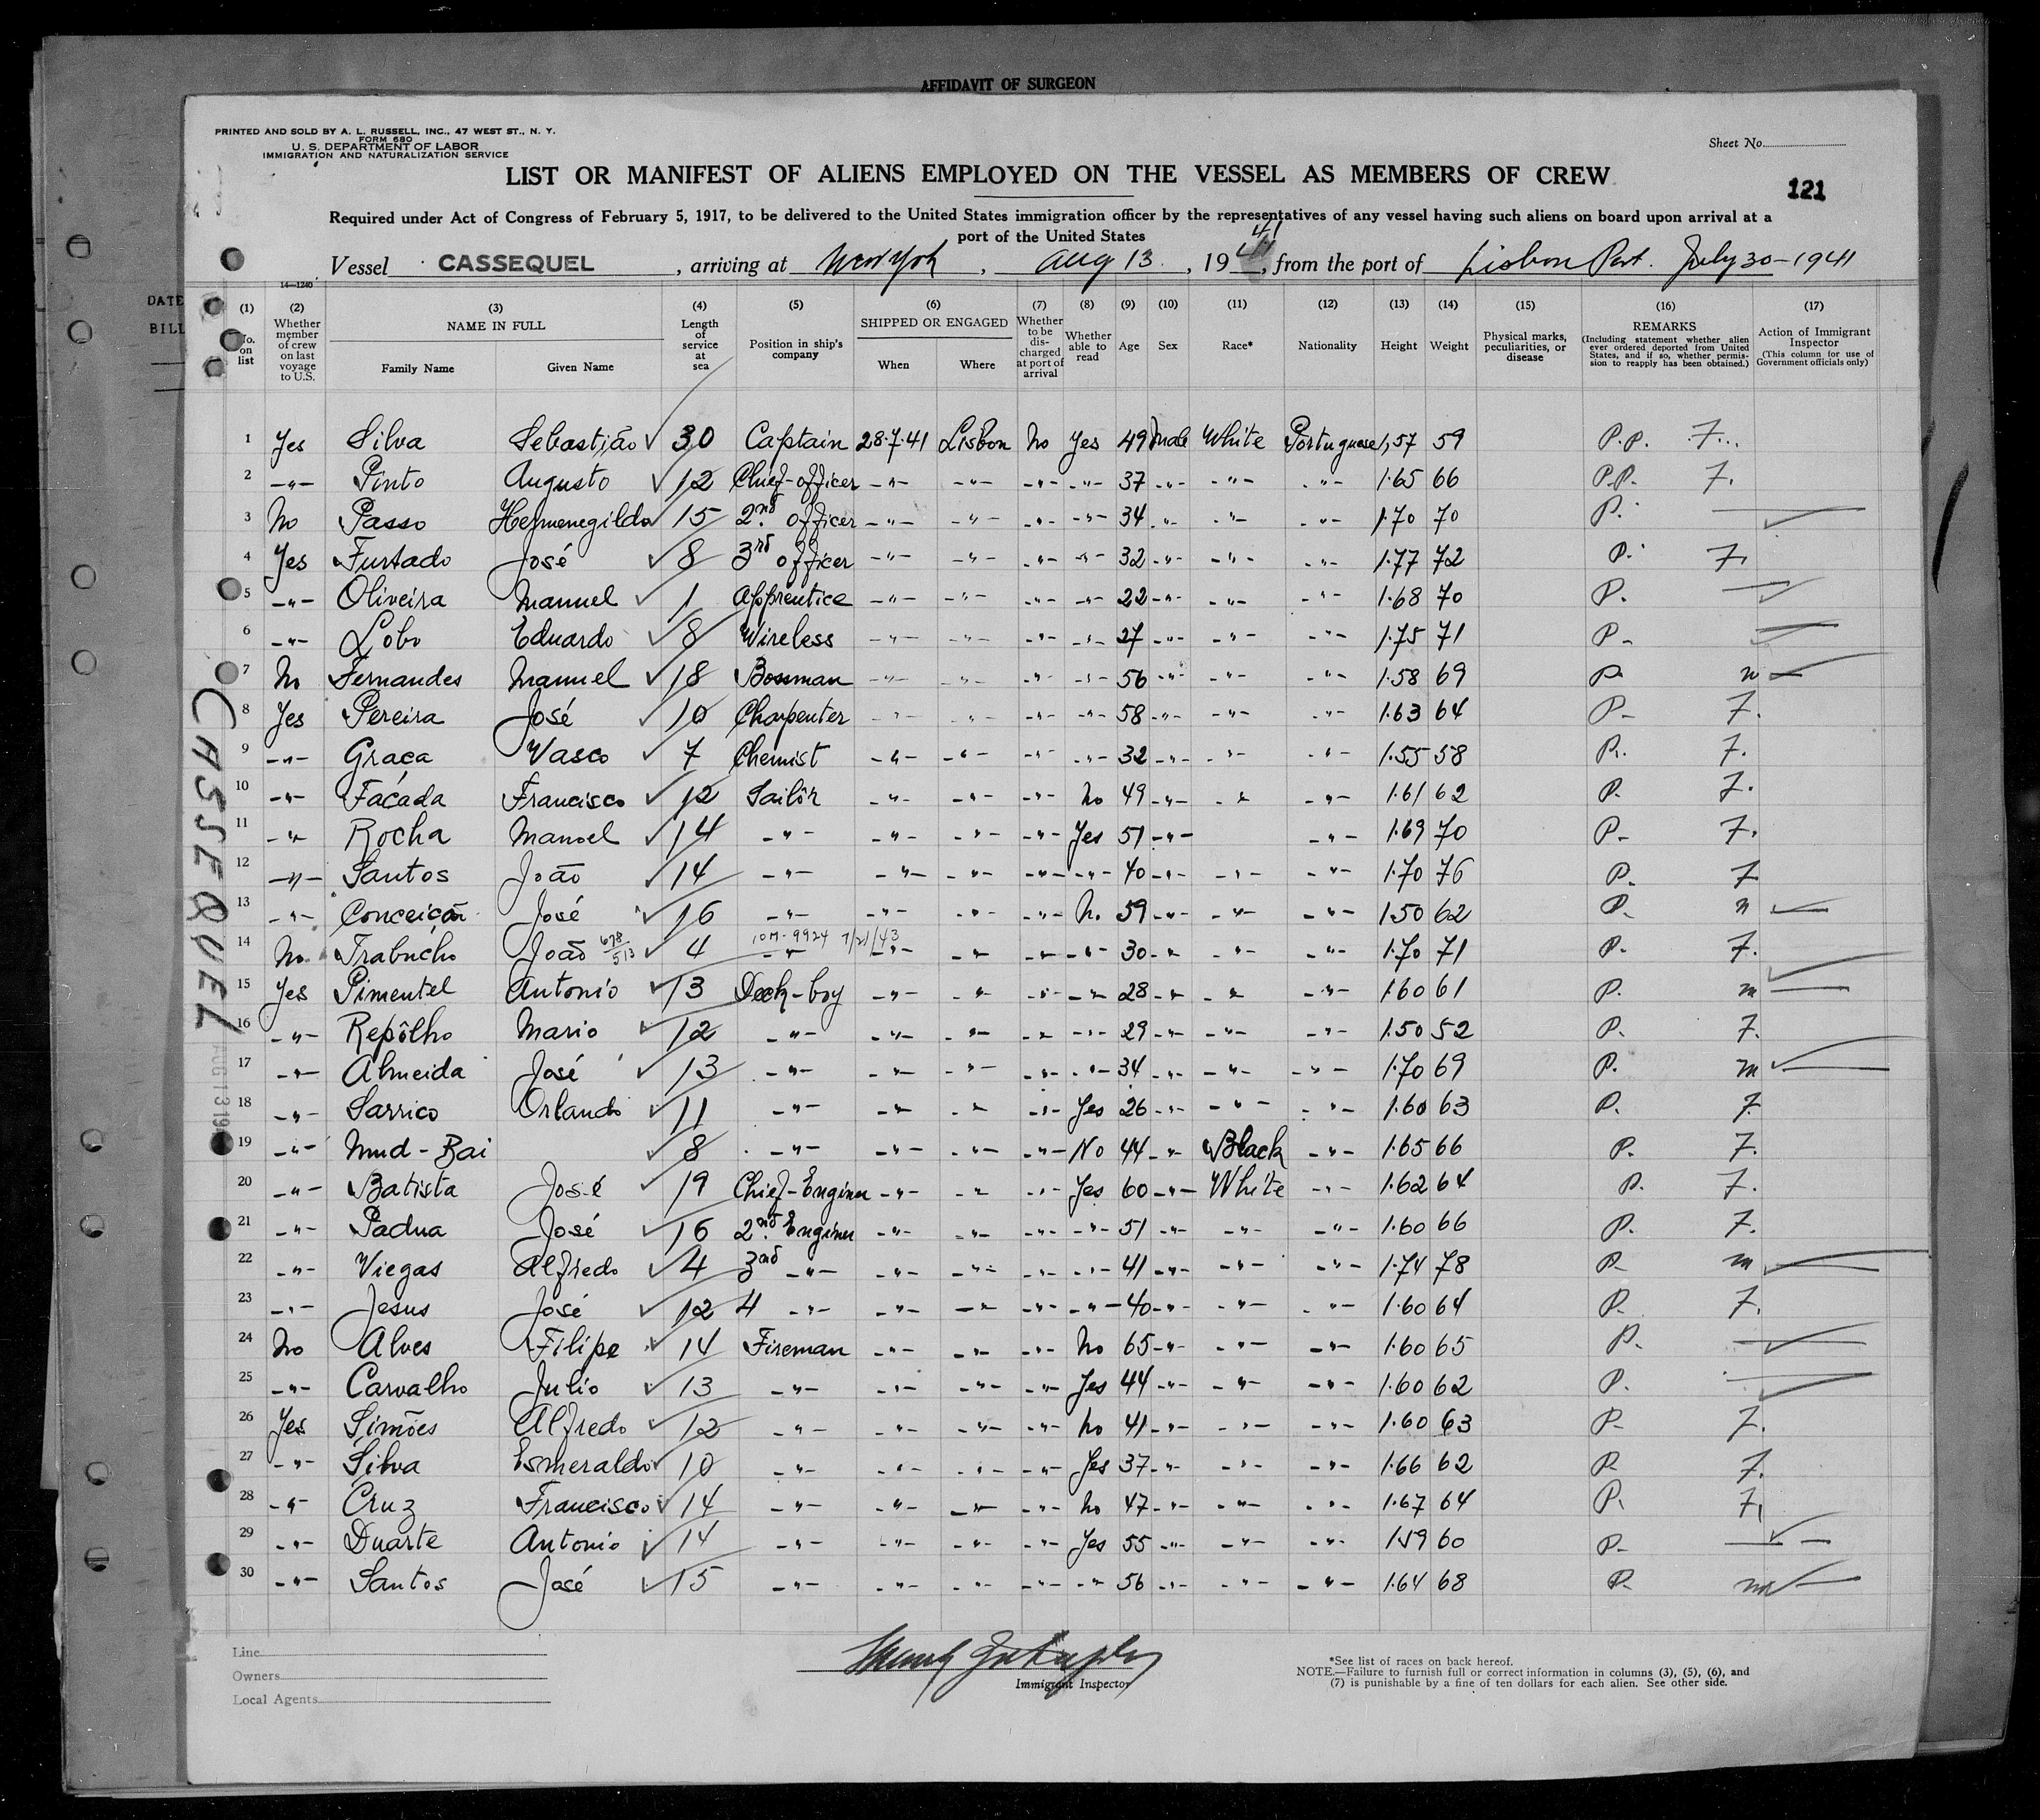 AFFIDAVIT OF SURGEON
PRINTED AND SOLD BY A. L. RUSSELL, INC., 47 WEST ST., N. Y.
FORM 680
U. S. DEPARTMENT OF LABOR
IMMIGRATION AND NATURALIZATION SERVICE
Sheet No.
LIST OR MANIFEST OF ALIENS EMPLOYED ON THE VESSEL AS MEMBERS OF CREW
121
Required under Act of Congress of February 5, 1917, to be delivered to the United States immigration officer by the representatives of any vessel having such aliens on board upon arrival at a
port of the United States
Vessel CASSEQUEL, arriving at New York, Aug 13, 1941, from the port of Lisbon Port. July 30-1941
DATE
BILL
14-1240
(1) (2) (3) (4) (5) (6) (7) (8) (9) (10) (11) (12) (13) (14) (15) (16) (17)
No. on list
Whether member of crew on last voyage to U.S.
NAME IN FULL
Family Name Given Name
Length of service at sea
Position in ship's company
SHIPPED OR ENGAGED
When Where
Whether to be discharged at port of arrival
Whether able to read
Age Sex Race* Nationality Height Weight
Physical marks, peculiarities, or disease
REMARKS
(Including statement whether alien ever ordered deported from United States, and if so, whether permission to reapply has been obtained.)
Action of Immigrant Inspector
(This column for use of Government officials only)
1 Yes Silva Sebastião 30 Captain 28.7.41 Lisbon No Yes 49 Male White Portuguese 1,57 59 P.P. F
2 -"- Pinto Augusto 12 Chief-officer -"- -"- -"- -"- 37 -"- -"- -"- 1.65 66 P.P. F.
3 No Passo Hermenegildo 15 2nd officer -"- -"- -"- -"- 34 -"- -"- -"- 1.70 70 P.
4 Yes Furtado José 8 3rd officer -"- -"- -"- -"- 32 -"- -"- -"- 1.77 72 P. F.
5 -"- Oliveira Manuel 1 Apprentice -"- -"- -"- -"- 22 -"- -"- -"- 1.68 70 P.
6 -"- Lobo Eduardo 8 Wireless -"- -"- -"- -"- 27 -"- -"- -"- 1.75 71 P-
7 No Fernandes Manuel 18 Bossman -"- -"- -"- -"- 56 -"- -"- -"- 1.58 69 P- n
8 Yes Pereira José 10 Charpenter -"- -"- -"- -"- 58 -"- -"- -"- 1.63 64 P- F.
9 -"- Graça Vasco 7 Chemist -"- -"- -"- -"- 32 -"- -"- -"- 1.55 58 P. F.
10 -"- Façada Francisco 12 Sailôr -"- -"- -"- No 49 -"- -"- -"- 1.61 62 P. F.
11 -"- Rocha Manoel 14 -"- -"- -"- -"- Yes 51 -"- -"- 1.69 70 P- F.
12 -"- Santos João 14 -"- -"- -"- -"- -"- 40 -"- -"- -"- 1.70 76 P. F
13 -"- Conceição José 16 -"- -"- -"- -"- No 59 -"- -"- -"- 1.50 62 P. n
10M-9924 7/21/43
14 No Trabucho João 678/513 4 -"- -"- -"- -"- -"- 30 -"- -"- -"- 1.70 71 P. F.
15 Yes Pimentel Antonio 13 Deck-boy -"- -"- -"- -"- 28 -"- -"- -"- 1.60 61 P. m
16 -"- Repôlho Mario 12 -"- -"- -"- -"- -"- 29 -"- -"- -"- 1.50 52 P. F.
17 -"- Almeida José 13 -"- -"- -"- -"- -"- 34 -"- -"- -"- 1.70 69 P. m
18 -"- Sarrico Orlando 11 -"- -"- -"- -"- Yes 26 -"- -"- -"- 1.60 63 P. F
19 -"- Mud-Bai 8 -"- -"- -"- -"- No 44 -"- Black -"- 1.65 66 P. F.
20 -"- Batista José 19 Chief-Enginer -"- -"- -"- Yes 60 -"- White -"- 1.62 64 P. F.
21 -"- Padua José 16 2nd Enginer -"- -"- -"- -"- 51 -"- -"- -"- 1.60 66 P. F.
22 -"- Viegas Alfredo 4 3nd -"- -"- -"- -"- -"- 41 -"- -"- -"- 1.74 78 P- m
23 -"- Jesus José 12 4 -"- -"- -"- -"- -"- 40 -"- -"- -"- 1.60 64 P- F.
24 No Alves Filipe 14 Fireman -"- -"- -"- No 65 -"- -"- -"- 1.60 65 P.
25 -"- Carvalho Julio 13 -"- -"- -"- -"- Yes 44 -"- -"- -"- 1.60 62 P.
26 Yes Simões Alfredo 12 -"- -"- -"- -"- No 41 -"- -"- -"- 1.60 63 P- F.
27 -"- Silva Esmeraldo 10 -"- -"- -"- -"- Yes 37 -"- -"- -"- 1.66 62 P- F.
28 -"- Cruz Francisco 14 -"- -"- -"- -"- No 47 -"- -"- -"- 1.67 64 P. F
29 -"- Duarte Antonio 14 -"- -"- -"- -"- Yes 55 -"- -"- -"- 1.59 60 P-
30 -"- Santos José 15 -"- -"- -"- -"- -"- 56 -"- -"- -"- 1.64 68 P-
CASSEQUEL
AUG 13 19
Line
Owners
Local Agents
Immigrant Inspector
*See list of races on back hereof.
NOTE.—Failure to furnish full or correct information in columns (3), (5), (6), and
(7) is punishable by a fine of ten dollars for each alien. See other side.